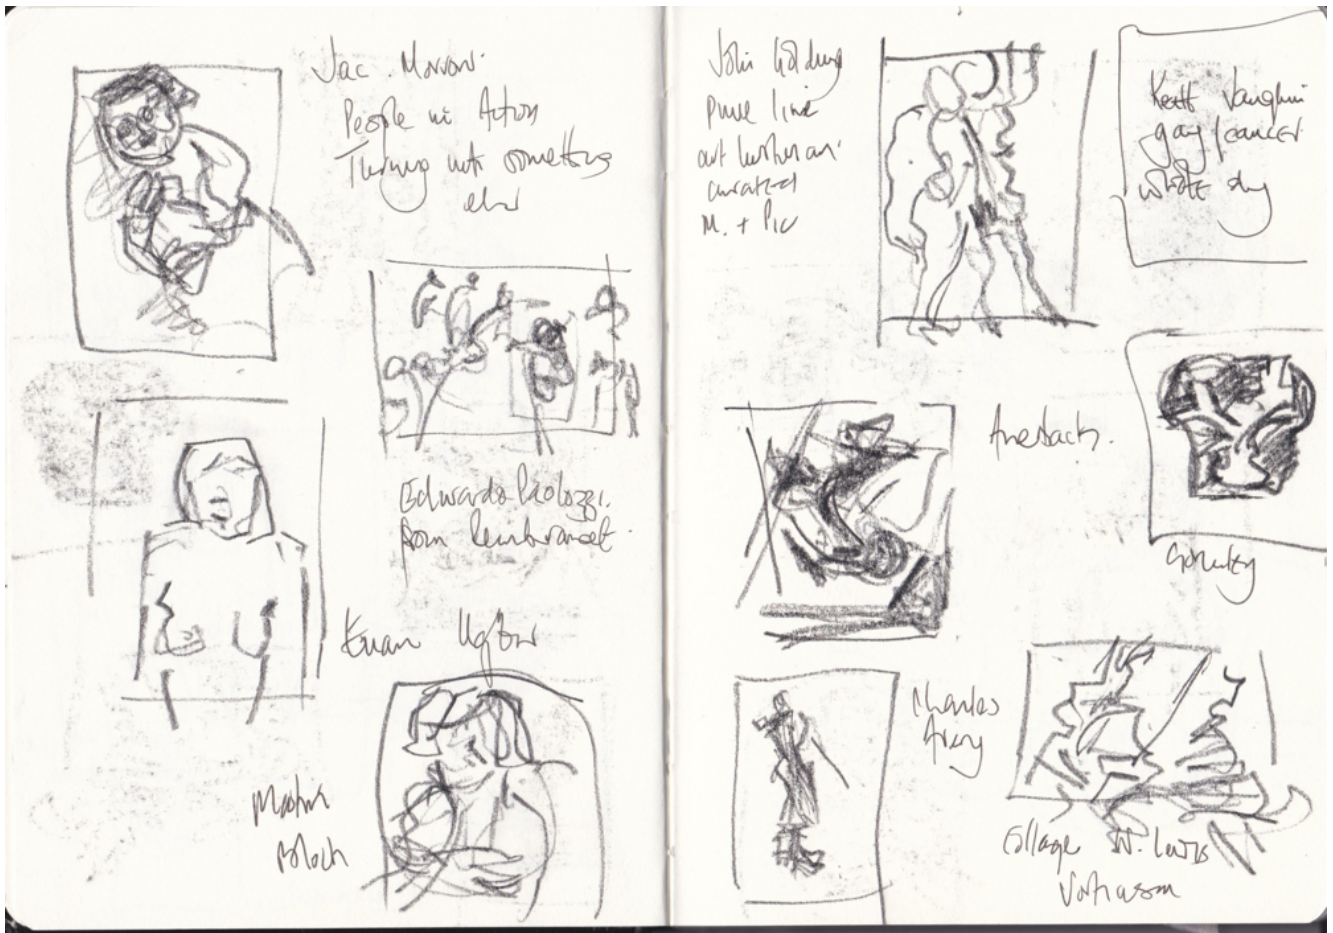 Jac.
People in Action
Turning into something
else
Edwardo Paolozzi.
from Rembrandt.
Euan Uglow
Martin
Bloch
John Golding
pure line
art historian.
curated
M. + Pic
Keith Vaughn
gay / cancer
wrote
Auerbach.
Gormley
Charles
Avery
Collage W. Lewis